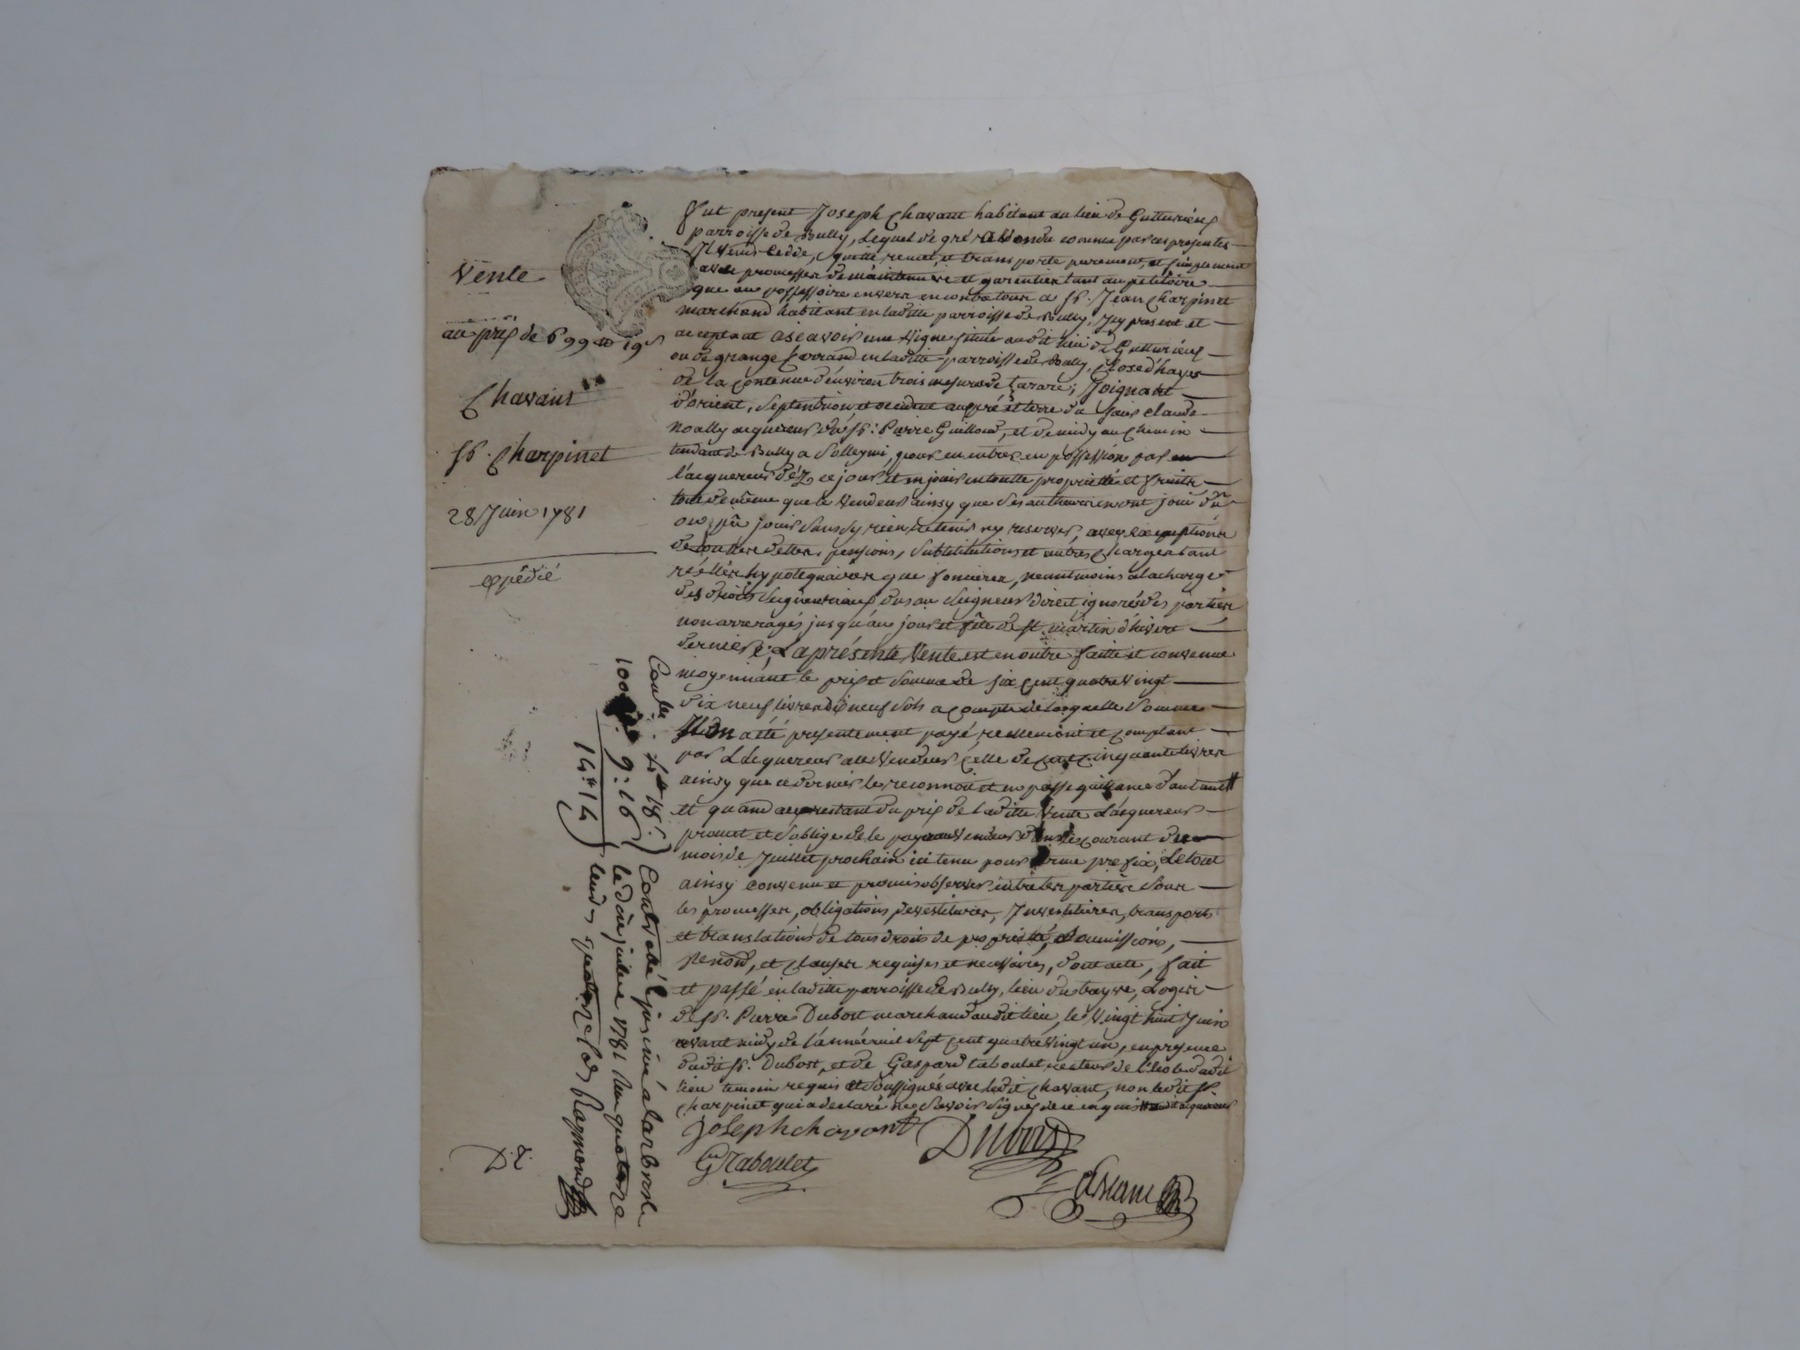 Vente
au prix de 699 ₶ 19 s
Chavant
Sr. Charpinet
28 Juin 1781
expédié
fut present Joseph Chavant habitant au lieu de
parroisse de Bully, Lequel de gré a vendu comme par ces presentes
Il vend cedde, quitte remet, et transporte purement, et simplement
avec promesses de maintenir et garentier tant au petitoire
que au possessoire envers encontre tous a Sr. Jean Charpinet
marchand habitant en laditte parroisse de Bully, Icy present et
acceptant ascavoir une vigne située audit lieu de
ou de grange ferrand en laditte parroisse de Bully, Close d'hayes
de la contenue d'environ trois mesures de tarare; Joignant
d'orient, Septentrion, et occident au pré et terre du Sieur Claude
Noally acquereur du Sr: Pierre Guilloud, et de midy au Chemin
tendant de Bully a Solleymi, pour en entrer en possession par
l'acquereur déz ce jour et en jouir en toutte proprietté et fruits
tout de même que le Vendeur ainsy que ses autheurs en ont joui dû
ou pû jouir sans sy rien retenir ny reserver, avec exemptions
de touttes dettes, pensions, Substitutions et autres Charges tant
réelles hypotequaires que foncieres, neantmoins a la charge
des droits Seigneuriaux dus au Seigneur direct ignorés des parties
non arreragés jusqu'au jour et fête de St. martin d'hivert
dernier; La présente Vente est en outre faitte et convenue
moyennant le prix et Somme de six cent quatre vingt
dix neuf livres dix neuf Sols a compte de laquelle Somme
Il en a été presentement payé, reellement et comptant
par L'acquereur au Vendeur Celle de cent cinquante livres
ainsy que ce dernier le reconnoit et en passe quittance d'autant
et quand au restant du prix de laditte Vente L'acquereur
promet et s'oblige de le payer au Vendeur dans le courant du
mois de Juillet prochain ici tenu pour terme prefix, Le tout
ainsy convenu et promis observer entre les parties sous
les promesses, obligations, devestitures, Investitures, transports
et translations de tous droits de proprieté, Soumissions,
renon, et clauses requises et necessaires, dont acte, fait
et passé en laditte parroisse de Bully, lieu du, Logis
de Sr. Pierre Dubost marchand audit lieu, le Vingt huit Juin
avant midy de l'année mil Sept cent quatre vingt un, en presence
dudit Sr. Dubost, et de Gaspard taboulet recteur de l'école dudit
lieu temoin requis et Soussignés avec ledit Chavant, non ledit Sr.
Charpinet qui a declaré ne Savoir Signer de ce enquis
Joseph chavant Dubost
G Taboulet
100 d. 9:16
14 ₶ 14
Controllé a larbresle
le juillet 1781 Reçu quatorze
livres quatorze sols Raymond